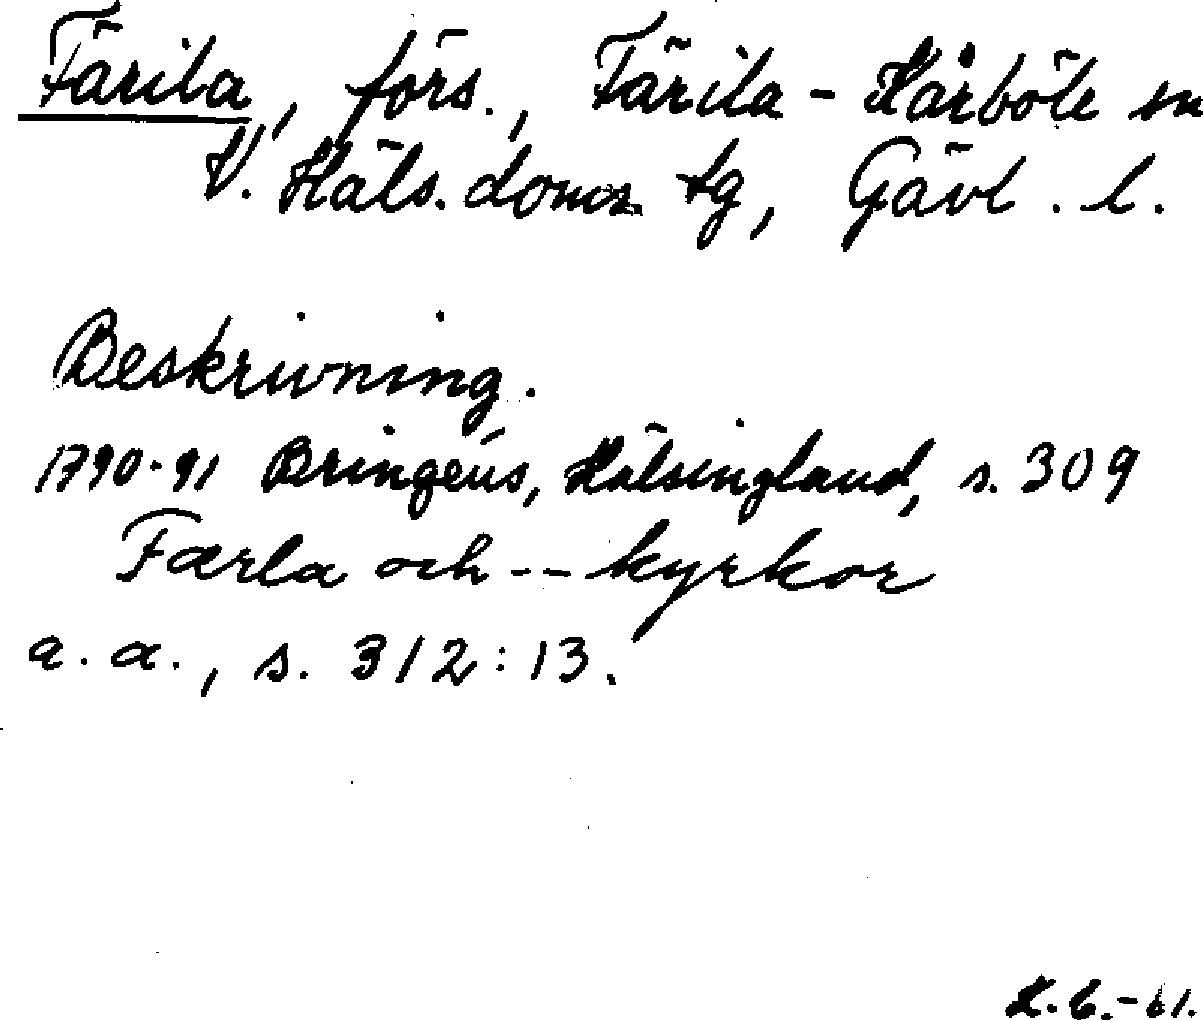 Färila, förs., Färila - Kårböle sn
V. Häls. doms. tg, Gävl. l.
Beskrivning.
1790-91 Bringéus, Hälsingland, s. 309
Færla och -- kyrkor
a. a., s. 312:13.
K.C.-61.